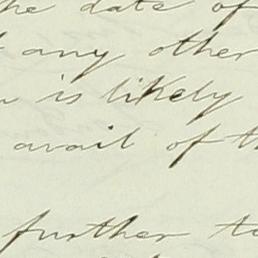 the date of
any other
is likely
avail of th
further to